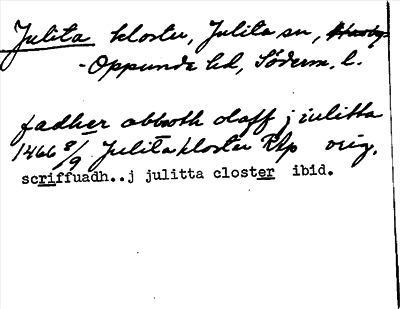 Julita kloster, Julita sn,
- Oppunda hd, Söderm. l.
fadher abboth olaff j iulitta
1466 8/9 Julita kloster RAp orig.
scriffuadh..j julitta closter ibid.